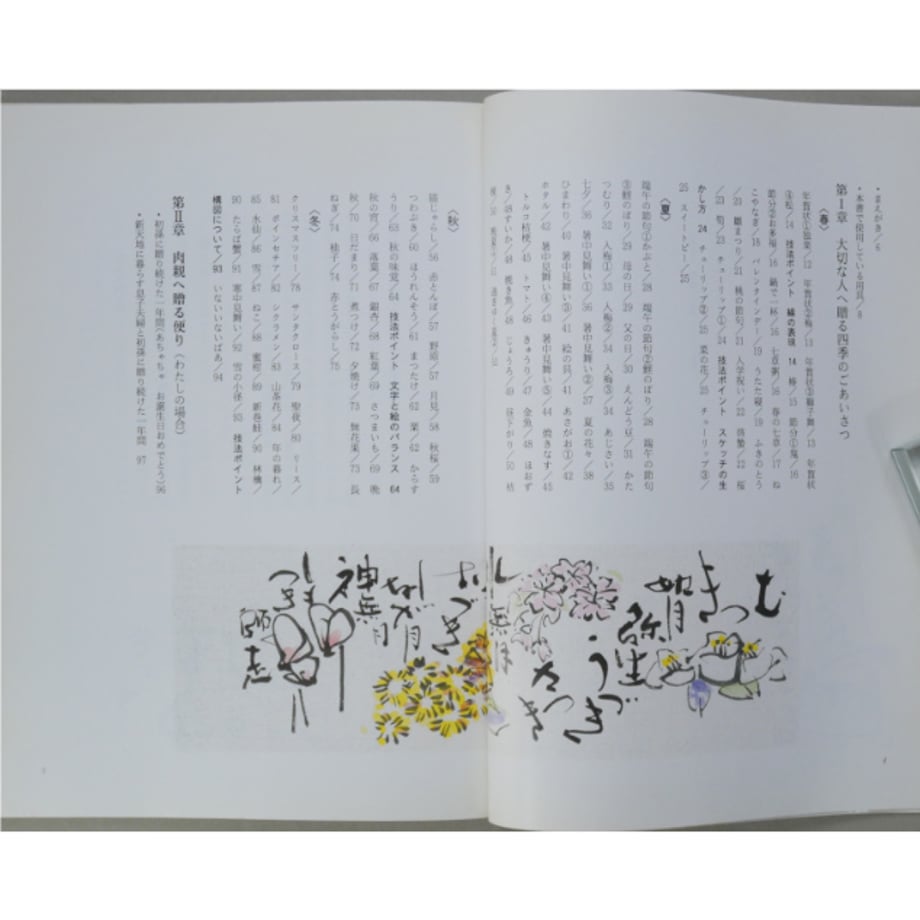 ・まえがき／6
・本書で使用している用具／8
第Ⅰ章　大切な人へ贈る四季のごあいさつ
〈春〉
年賀状①独楽／12　年賀状②梅／13　年賀状③獅子舞／13　年賀状
④松／14　技法ポイント　線の表現　14　椿／15　節分①鬼／16
節分②お多福／16　鍋で一杯／16　七草粥／16　春の七草／17　ね
こやなぎ／18　バレンタインデー／19　うたた寝／19　ふきのとう
／23　雛まつり／21　桃の節句／21　入学祝い／22　啓蟄／22　桜
／23　筍／23　チューリップ①／24　技法ポイント　スケッチの生
かし方　24　チューリップ②／25　菜の花／25　チューリップ③／
25　スイートピー／25
〈夏〉
端午の節句①かぶと／28　端午の節句②鯉のぼり／28　端午の節句
③鯉のぼり／29　母の日／29　父の日／30　えんどう豆／31　かた
つむり／32　入梅①／33　入梅②／34　入梅③／34　あじさい／35
七夕／36　暑中見舞い①／36　暑中見舞い②／37　夏の花々／38
ひまわり／40　暑中見舞い③／41　絵の具／41　あさがお①／42
ホタル／42　暑中見舞い④／43　暑中見舞い⑤／44　焼きなす／45
トルコ桔梗／45　トマト／46　きゅうり／47　金魚／48　ほおず
き／48　すいか／48　焼き魚／49　じょうろ／49　昼下がり／50　桔
梗／50
〈秋〉
猫じゃらし／56　赤とんぼ／57　野原／57　月見／58　秋桜／59
つわぶき／60　ほうれんそう／61　まつたけ／62　栗／62　からす
うり／63　秋の味覚／64　技法ポイント　文字と絵のバランス　64
秋の宵／66　落葉／67　銀杏／68　紅葉／69　さつまいも／69　晩
秋／70　日だまり／71　煮つけ／72　夕焼け／73　無花果／73　長
ねぎ／74　柚子／74　赤とうがらし／75
〈冬〉
クリスマスツリー／78　サンタクロース／79　聖夜／80　リース／
81　ポインセチア／82　シクラメン／83　山茶花／84　年の暮れ／
85　水仙／86　雪／87　ねこ／88　蜜柑／89　新巻鮭／90　林檎／
90　たらば蟹／91　寒中見舞い／92　雪の小径／93　技法ポイント
構図について／93　いないいないばあ／94
第Ⅱ章　肉親へ贈る便り（わたしの場合）
・初孫に贈り続けた一年間（あちゃちゃ　お誕生日おめでとう）96
・新天地に暮らす息子夫婦と初孫に贈り続けた一年間　97
むつき
如月
弥生
うづき
さつき